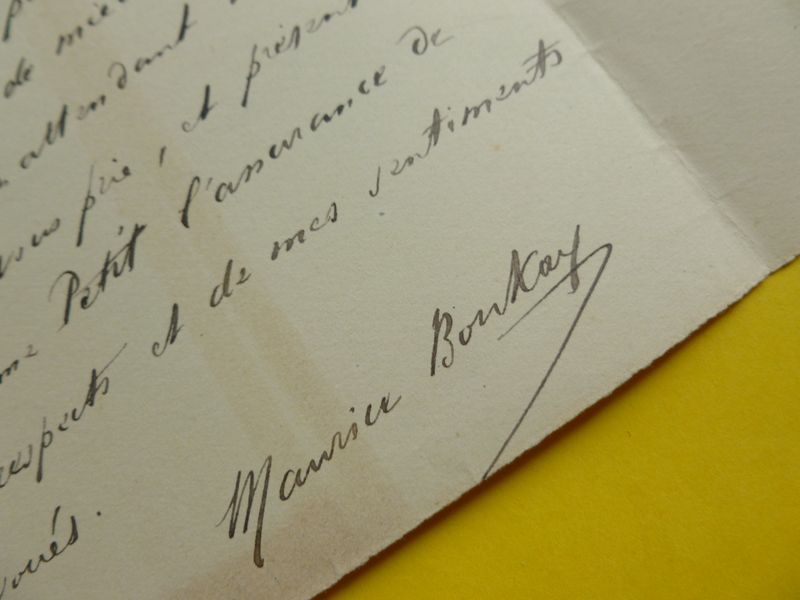 de
attendant
prie, et présent
Petit l'assurance de
respects et de mes sentiments
Maurice Boukay